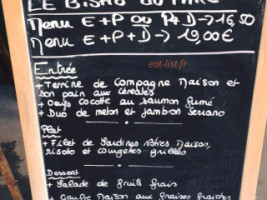 LE BISTRO DU PARC
Menu E+P ou P+D → 16,50
Menu E+P+D → 19,00€
Entrée
eat-list.fr
+ Terrine de Campagne Maison et
son pain aux céréales
+ Oeufs Cocotte au Saumon Fumé
+ Duo de melon et jambon Serrano
Plat
+ Filet de Sardines rôties Maison,
risoto et courgettes grillées
Dessert
+ Salade de fruits frais
+ Gaufre Maison aux fraises fraîches